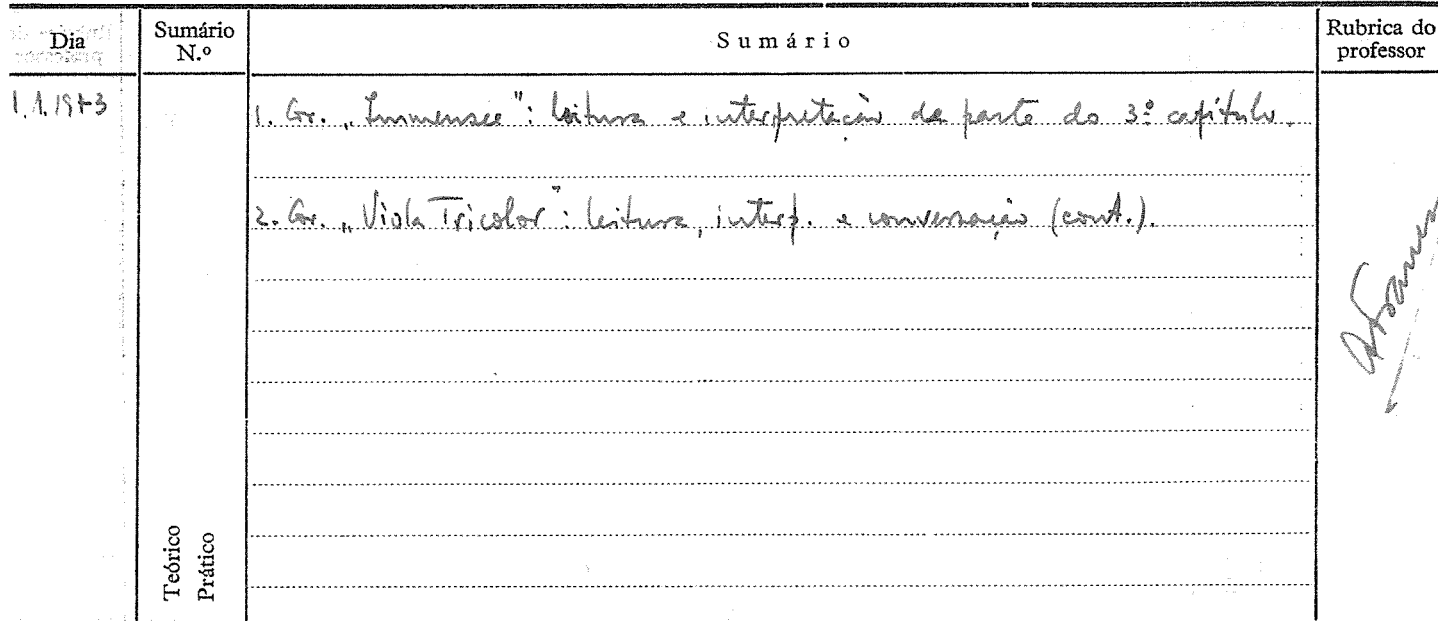 Dia
Sumário N.º
Sumário
Rubrica do professor
1.1.1973
1. Gr. „Immensee": leitura e interpretação de parte do 3º capítulo.
2. Gr. „Viola Tricolor": leitura, interp. e conversação (cont.).
Teórico
Prático